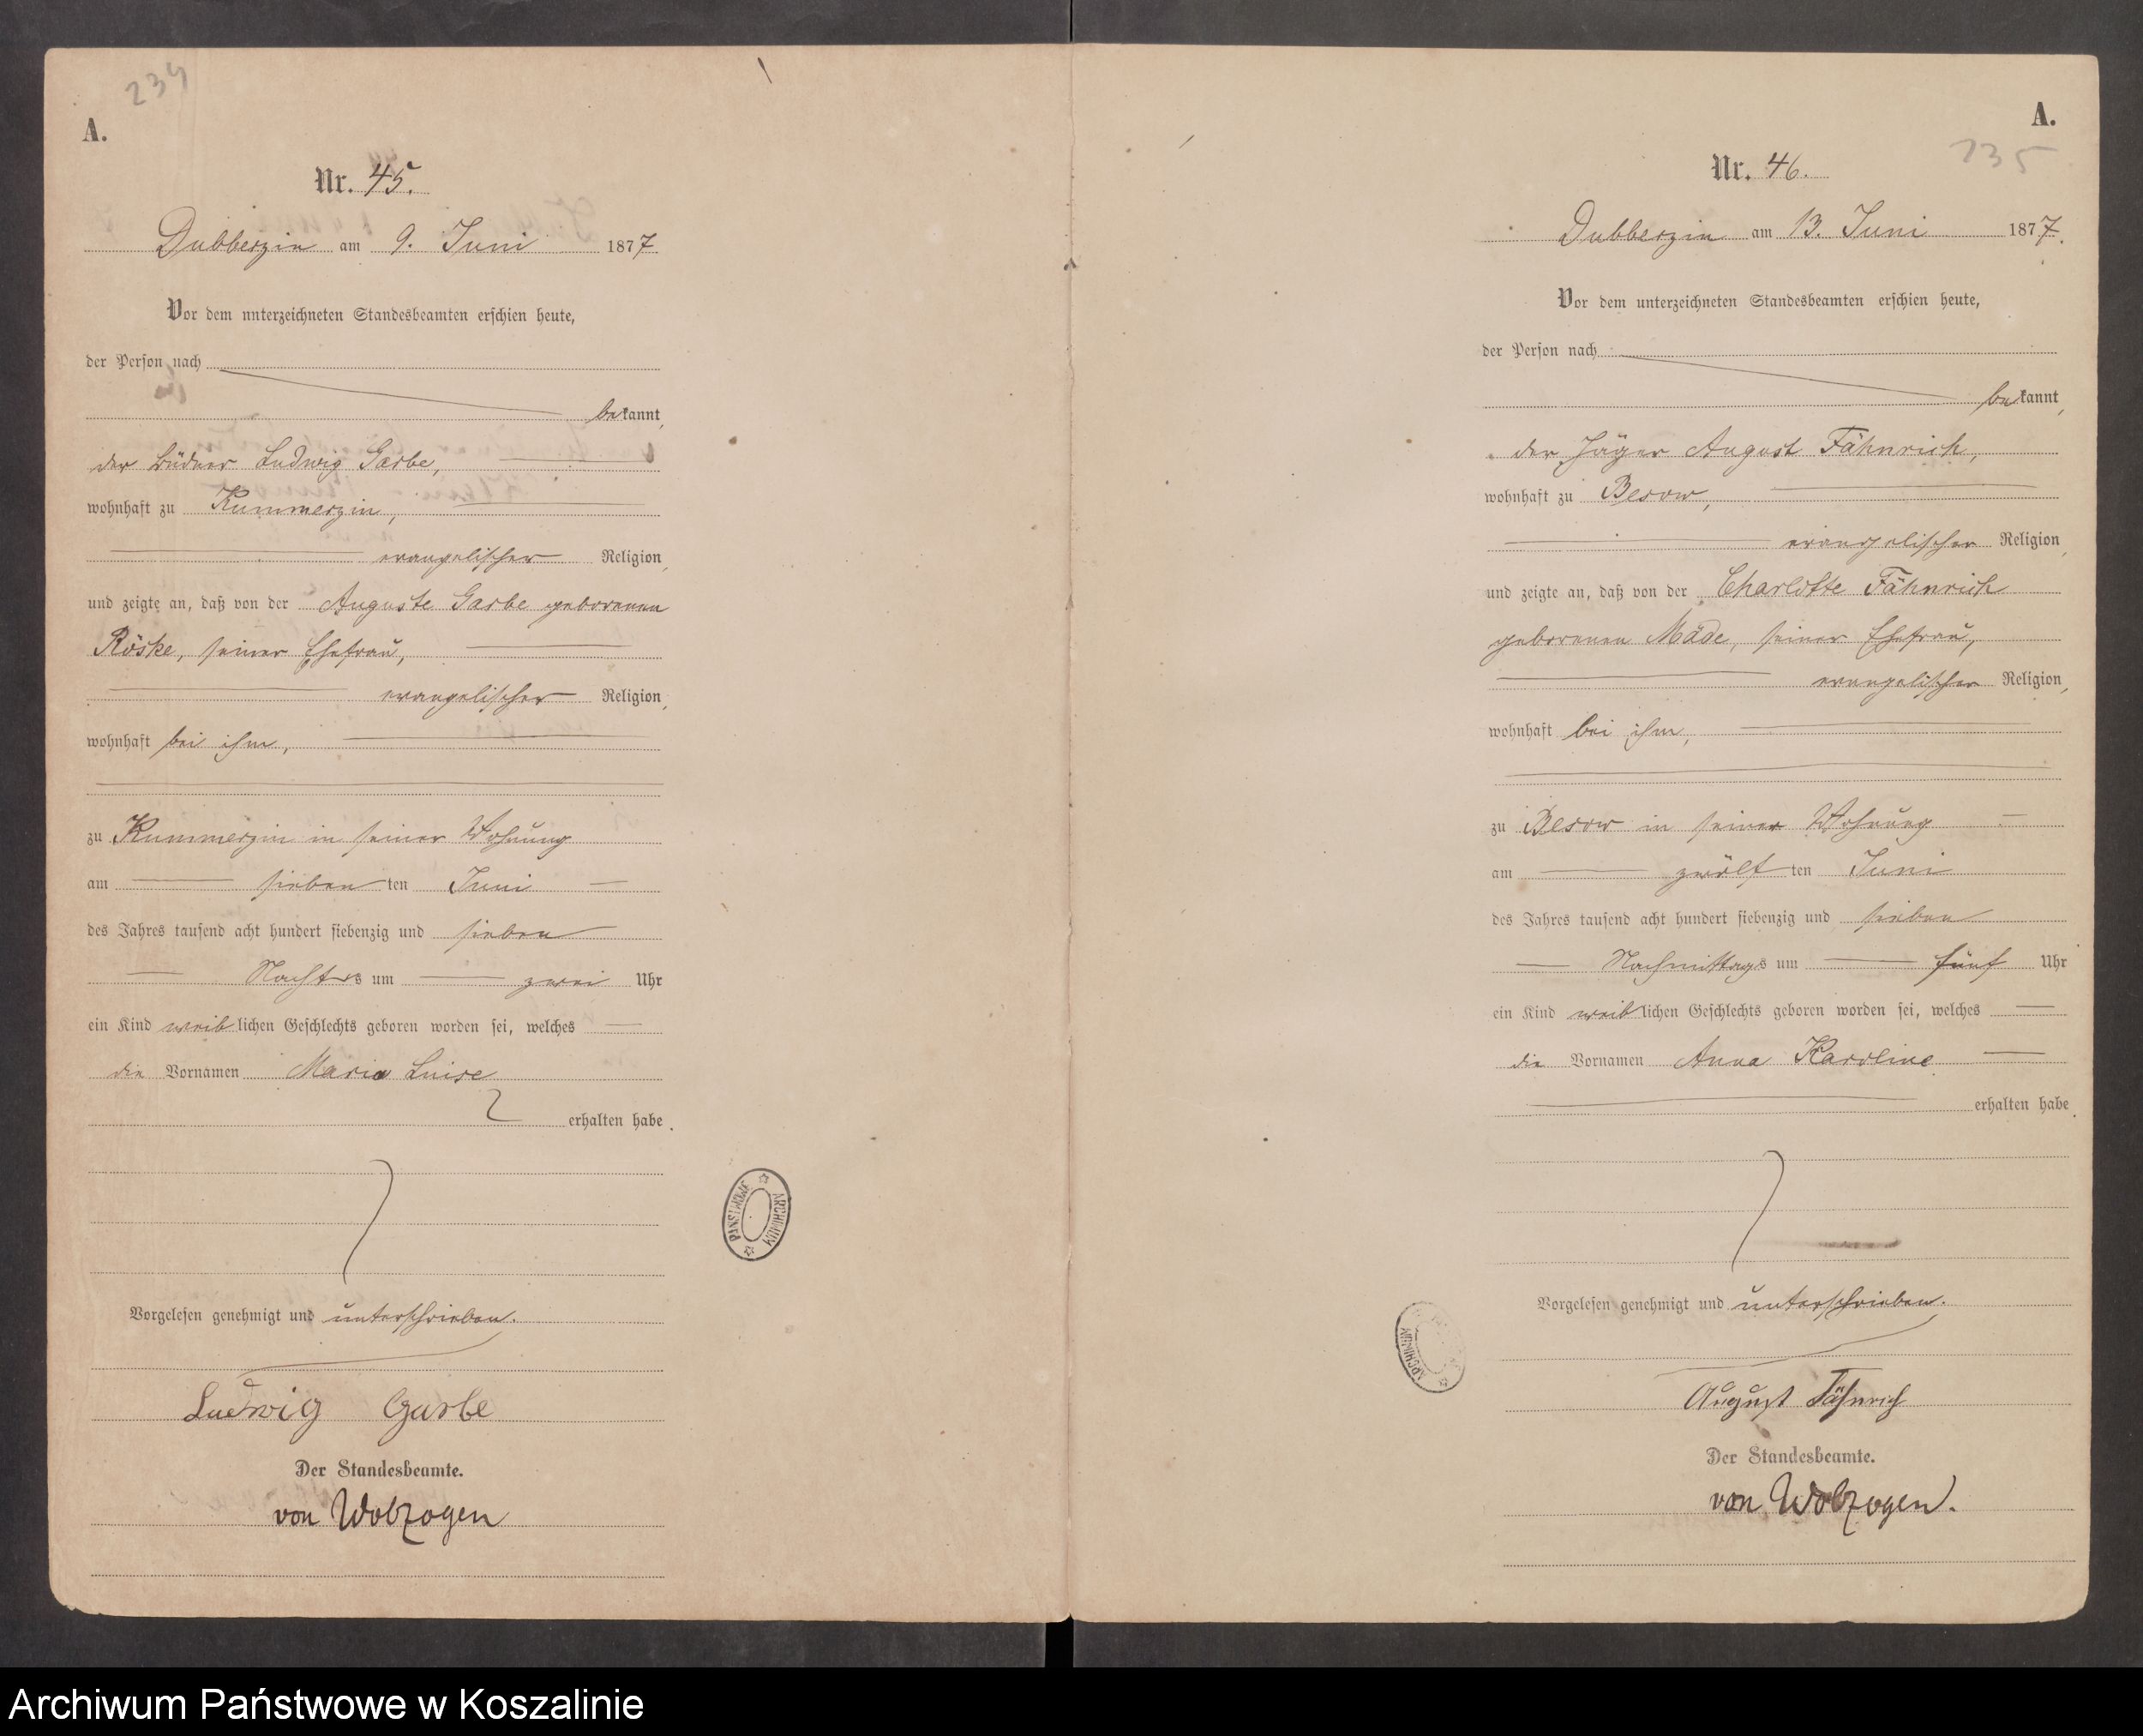 234
A.
Nr. 45.
Dubberzin am 9. Juni 1877
Vor dem unterzeichneten Standesbeamten erschien heute,
der Person nach
bekannt,
der Büdner Ludwig Garbe,
wohnhaft zu Kummerzin,
evangelischer Religion,
und zeigte an, daß von der Auguste Garbe geborenen
Röske, seiner Ehefrau,
evangelischer Religion,
wohnhaft bei ihm,
zu Kummerzin in seiner Wohnung
am sieben ten Juni
des Jahres tausend acht hundert siebenzig und sieben
Nachts um zwei Uhr
ein Kind weiblichen Geschlechts geboren worden sei, welches
die Vornamen Maria Luise
erhalten habe.
Vorgelesen genehmigt und unterschrieben.
Ludwig Garbe
Der Standesbeamte.
von Wolzogen
ARCHIWUM PAŃSTWOWE
A.
235
Nr. 46.
Dubberzin am 13. Juni 1877.
Vor dem unterzeichneten Standesbeamten erschien heute,
der Person nach
bekannt,
der Jäger August Fähnrich,
wohnhaft zu Besow,
evangelischer Religion,
und zeigte an, daß von der Charlotte Fähnrich
geborenen Mäde, seiner Ehefrau,
evangelischer Religion,
wohnhaft bei ihm,
zu Besow in seiner Wohnung
am zwölf ten Juni
des Jahres tausend acht hundert siebenzig und sieben
Nachmittags um fünf Uhr
ein Kind weiblichen Geschlechts geboren worden sei, welches
die Vornamen Anna Karoline
erhalten habe.
Vorgelesen genehmigt und unterschrieben.
August Fähnrich
Der Standesbeamte.
von Wolzogen.
ARCHIWUM
Archiwum Państwowe w Koszalinie